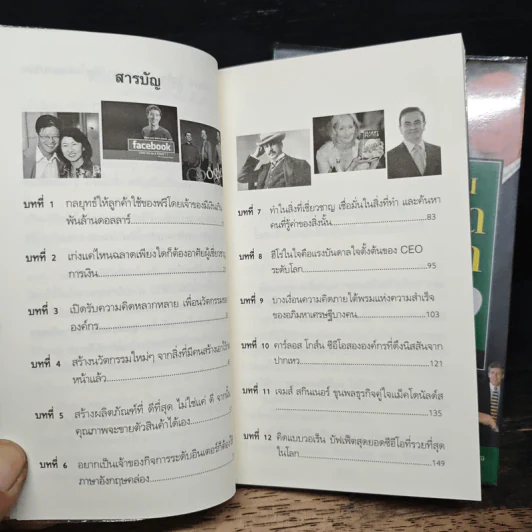 สารบัญ
facebook
บทที่ 1 กลยุทธ์ให้ลูกค้าใช้ของฟรีโดยเจ้าของมีเงิน
พันล้านดอลลาร์
บทที่ 2 เก่งแค่ไหนฉลาดเพียงใดก็ต้องอาศัยผู้เชี่ยวชาญ
การเงิน
บทที่ 3 เปิดรับความคิดหลากหลาย เพื่อนวัตกรรมของ
องค์กร
บทที่ 4 สร้างนวัตกรรมใหม่ๆ จากสิ่งที่มีคนสร้างเอาไว้
หน้าแล้ว
บทที่ 5 สร้างผลิตภัณฑ์ที่ ดีที่สุด ไม่ใช่แค่ ดี จากนั้น
คุณภาพจะขายตัวสินค้าได้เอง
บทที่ 6 อยากเป็นเจ้าของกิจการระดับอินเตอร์ก็ต้อง
ภาษาอังกฤษคล่อง
บทที่ 7 ทำในสิ่งที่เชี่ยวชาญ เชื่อมั่นในสิ่งที่ทำ และค้นหา
คนที่รู้ค่าของสิ่งนั้น 83
บทที่ 8 ฮีโร่ในใจคือแรงบันดาลใจตั้งต้นของ CEO
ระดับโลก 95
บทที่ 9 บางเงื่อนความคิดภายใต้พรมแห่งความสำเร็จ
ของอภิมหาเศรษฐีบางคน 103
บทที่ 10 คาร์ลอส โกส์น ซีอีโอสององค์กรที่ดึงนิสสันจาก
ปากเหว 121
บทที่ 11 เจมส์ สกินเนอร์ ขุนพลธุรกิจคู่ใจแม็คโดนัลด์ส
135
บทที่ 12 คิดแบบวอเร็น บัฟเฟ็ตสุดยอดซีอีโอที่รวยที่สุด
ในโลก 149